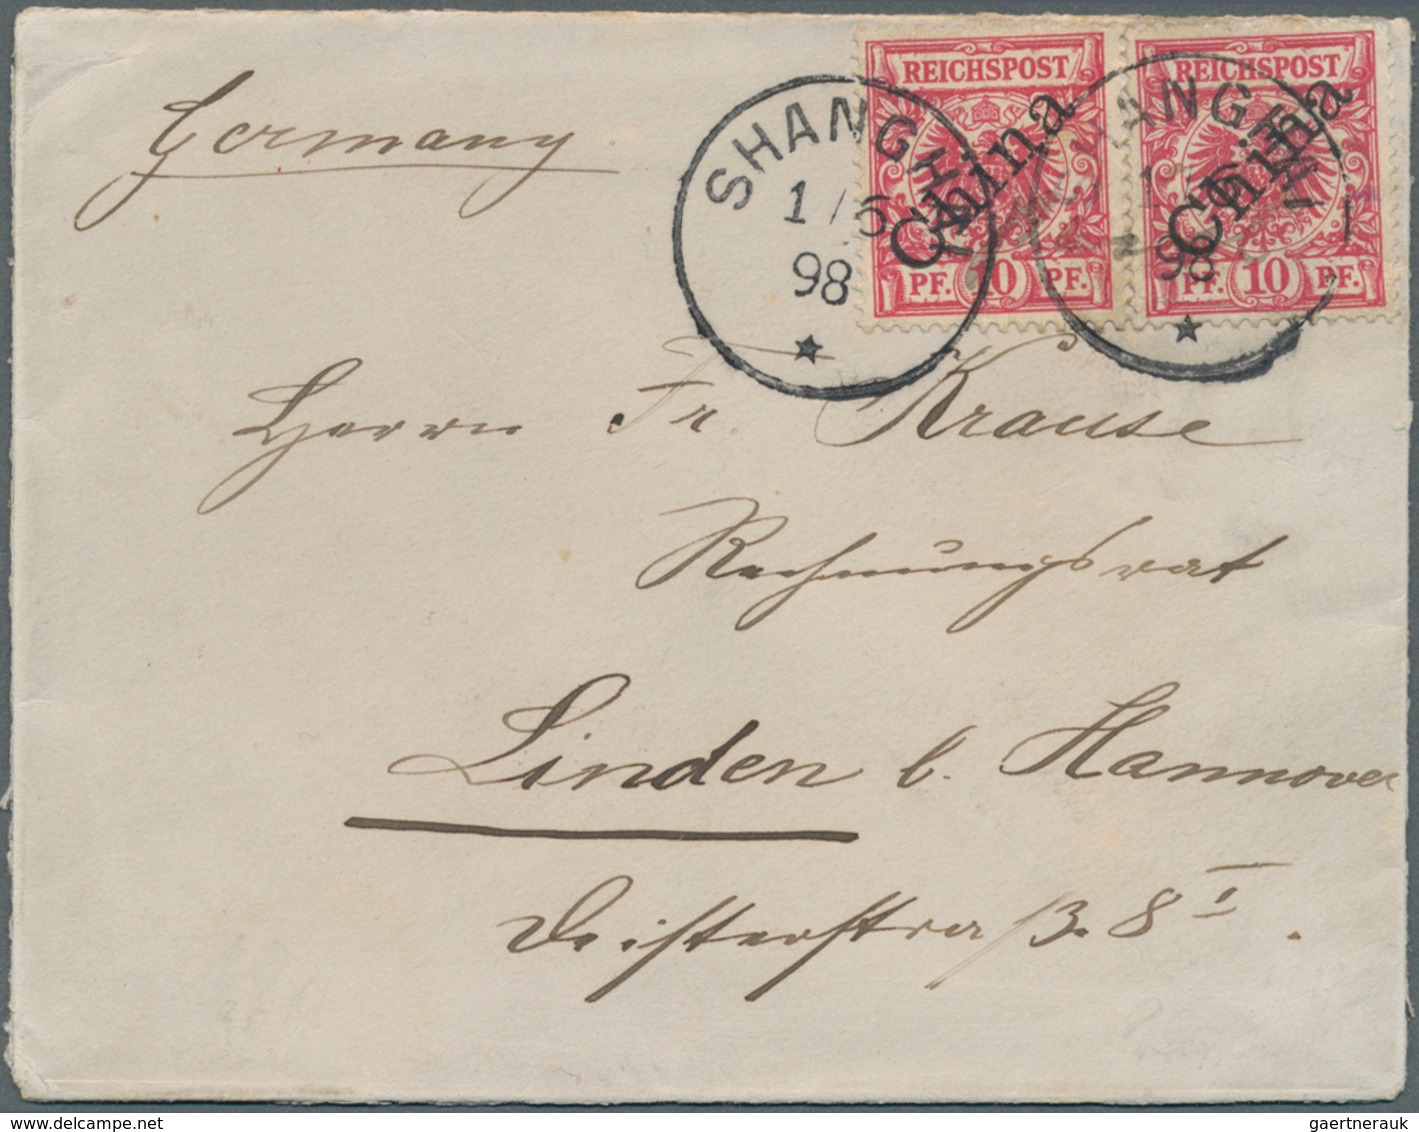 Germany
REICHSPOST
China
PF. 10 PF.
REICHSPOST
China
PF. 10 PF.
SHANGHAI
1/6
98
SHANGHAI
98
Herrn Fr. Krause
Rechnungsrat
Linden b. Hannover
Deisterstra 8 I
gaertnerauk